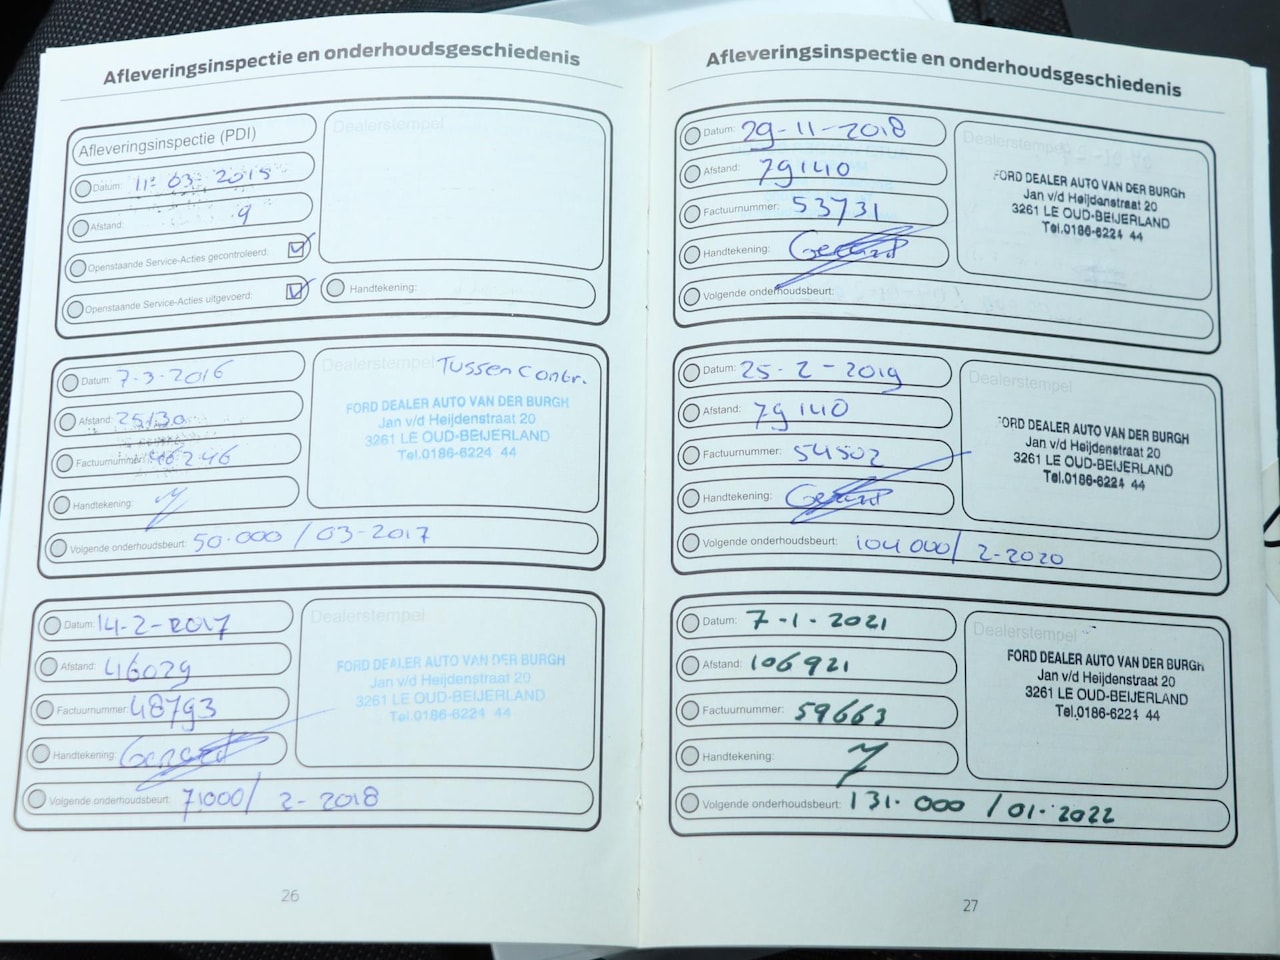 Afleveringsinspectie en onderhoudsgeschiedenis
Afleveringsinspectie (PDI)
Dealerstempel
Datum: 11-03-2015
Afstand: 9
Openstaande Service-Acties gecontroleerd:
Openstaande Service-Acties uitgevoerd:
Handtekening:
Datum: 7-3-2016
Dealerstempel Tussen Contr.
FORD DEALER AUTO VAN DER BURGH
Jan v/d Heijdenstraat 20
3261 LE OUD-BEIJERLAND
Tel.0186-6224 44
Afstand: 25130
Factuurnummer: 46246
Handtekening:
Volgende onderhoudsbeurt: 50.000 / 03-2017
Datum: 14-2-2017
Dealerstempel
FORD DEALER AUTO VAN DER BURGH
Jan v/d Heijdenstraat 20
3261 LE OUD-BEIJERLAND
Tel.0186-6224 44
Afstand: 46029
Factuurnummer: 48793
Handtekening:
Volgende onderhoudsbeurt: 71000/ 2-2018
26
Afleveringsinspectie en onderhoudsgeschiedenis
Datum: 29-11-2018
Dealerstempel
FORD DEALER AUTO VAN DER BURGH
Jan v/d Heijdenstraat 20
3261 LE OUD-BEIJERLAND
Tel.0186-6224 44
Afstand: 79140
Factuurnummer: 53731
Handtekening:
Volgende onderhoudsbeurt:
Datum: 25-2-2019
Dealerstempel
FORD DEALER AUTO VAN DER BURGH
Jan v/d Heijdenstraat 20
3261 LE OUD-BEIJERLAND
Tel.0186-6224 44
Afstand: 79140
Factuurnummer: 54502
Handtekening:
Volgende onderhoudsbeurt: 104000/ 2-2020
Datum: 7-1-2021
Dealerstempel
FORD DEALER AUTO VAN DER BURGH
Jan v/d Heijdenstraat 20
3261 LE OUD-BEIJERLAND
Tel.0186-6224 44
Afstand: 106921
Factuurnummer: 59663
Handtekening:
Volgende onderhoudsbeurt: 131.000 / 01-2022
27